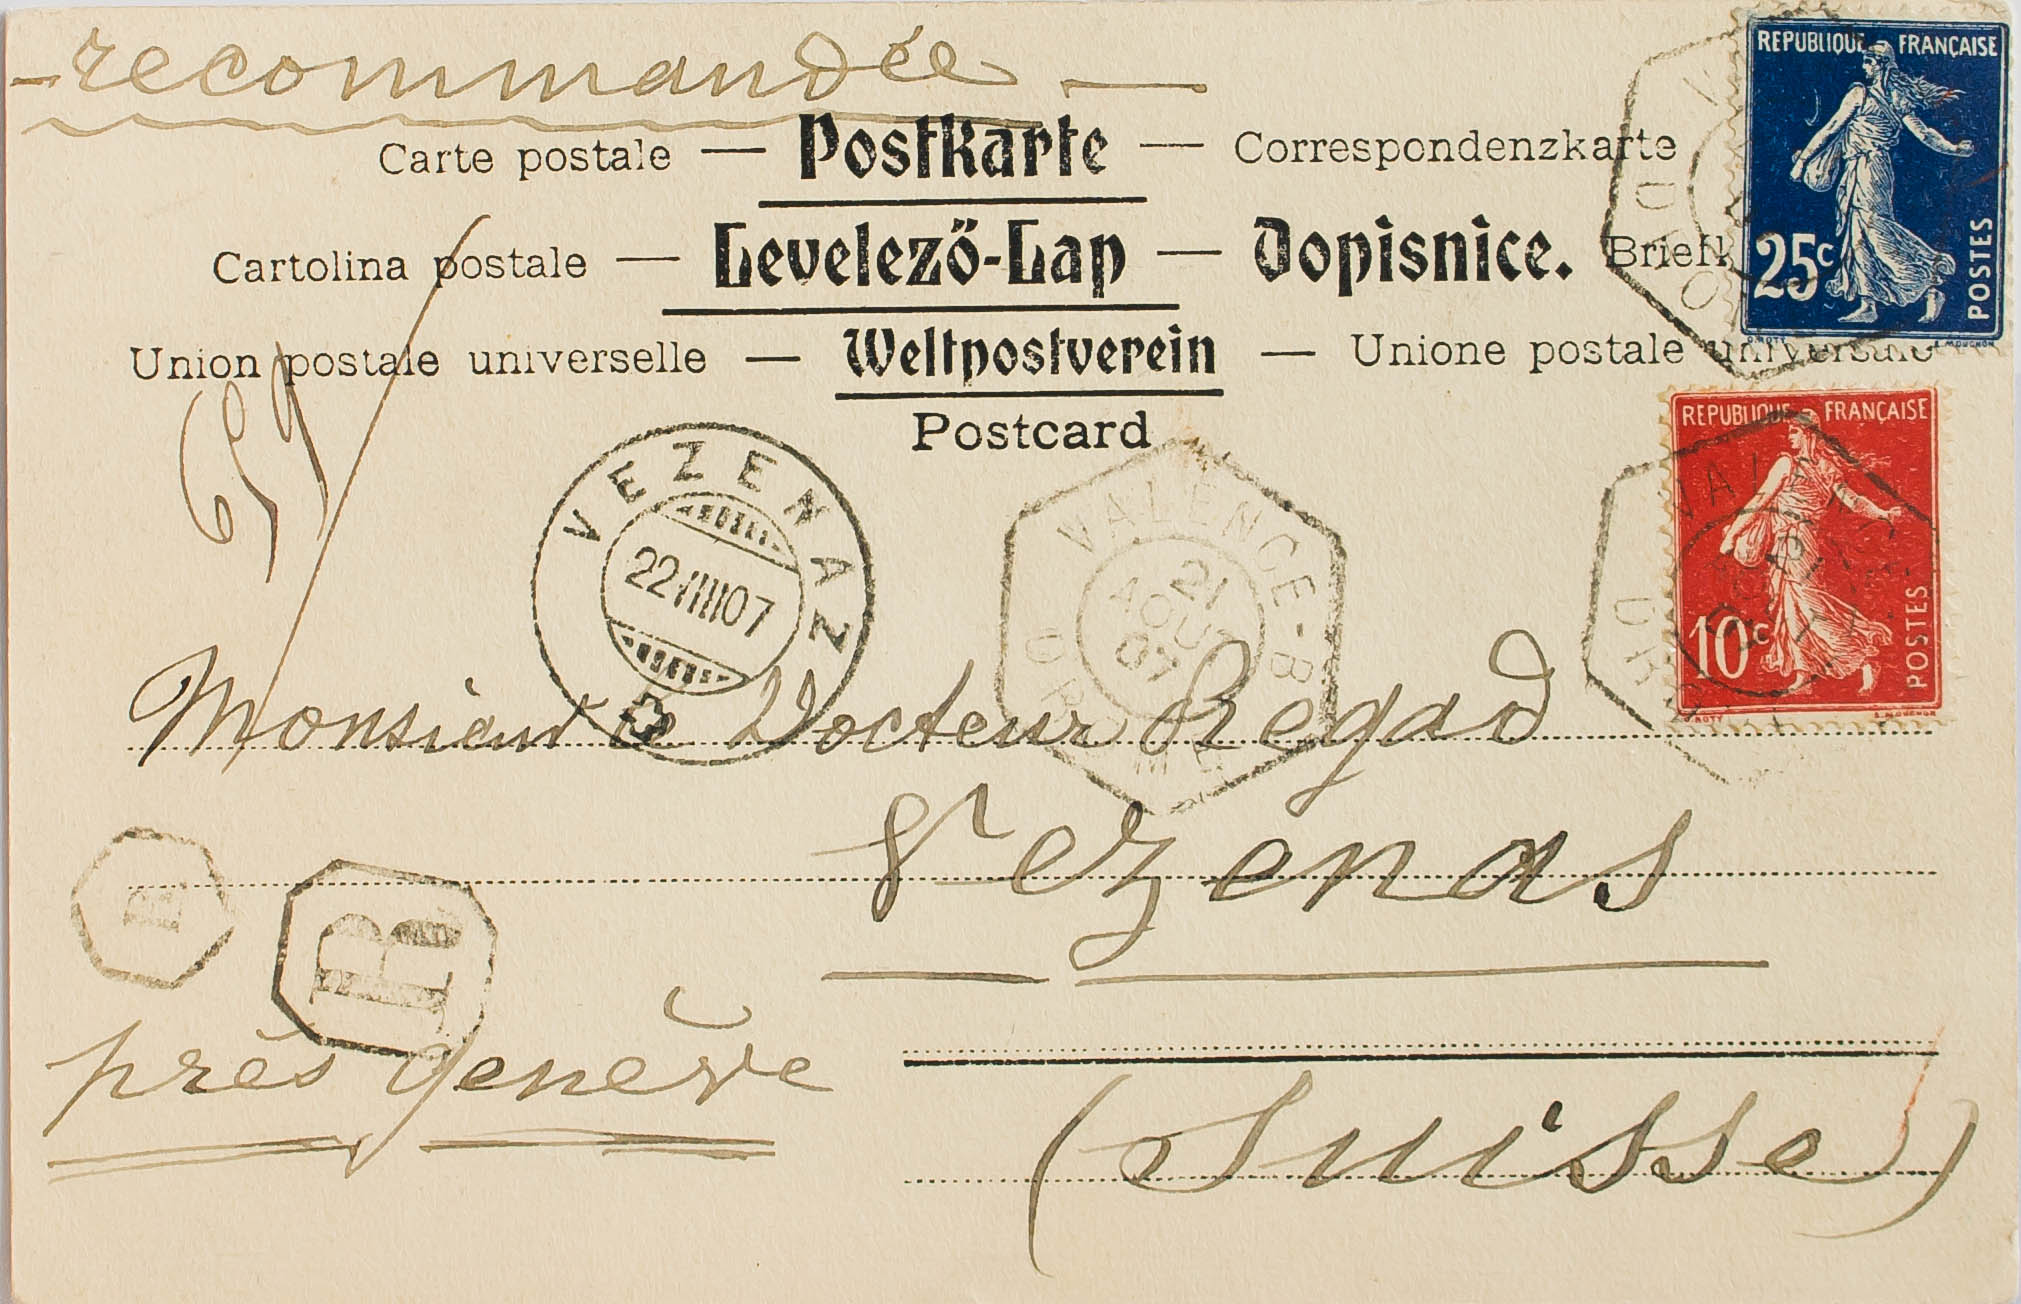 recommandée
REPUBLIQUE FRANÇAISE
25c
POSTES
Carte postale — Postkarte — Correspondenzkarte
Cartolina postale — Levelező-Lap — Dopisnice.
Union postale universelle — Weltpostverein — Unione postale universale
Postcard
REPUBLIQUE FRANÇAISE
10c
POSTES
VEZENAZ
22 VIII 07
VALENCE-B
21
AOUT
07
DROME
Monsieur le Docteur Regad
Vezenas
R
R
près Genève
(Suisse)